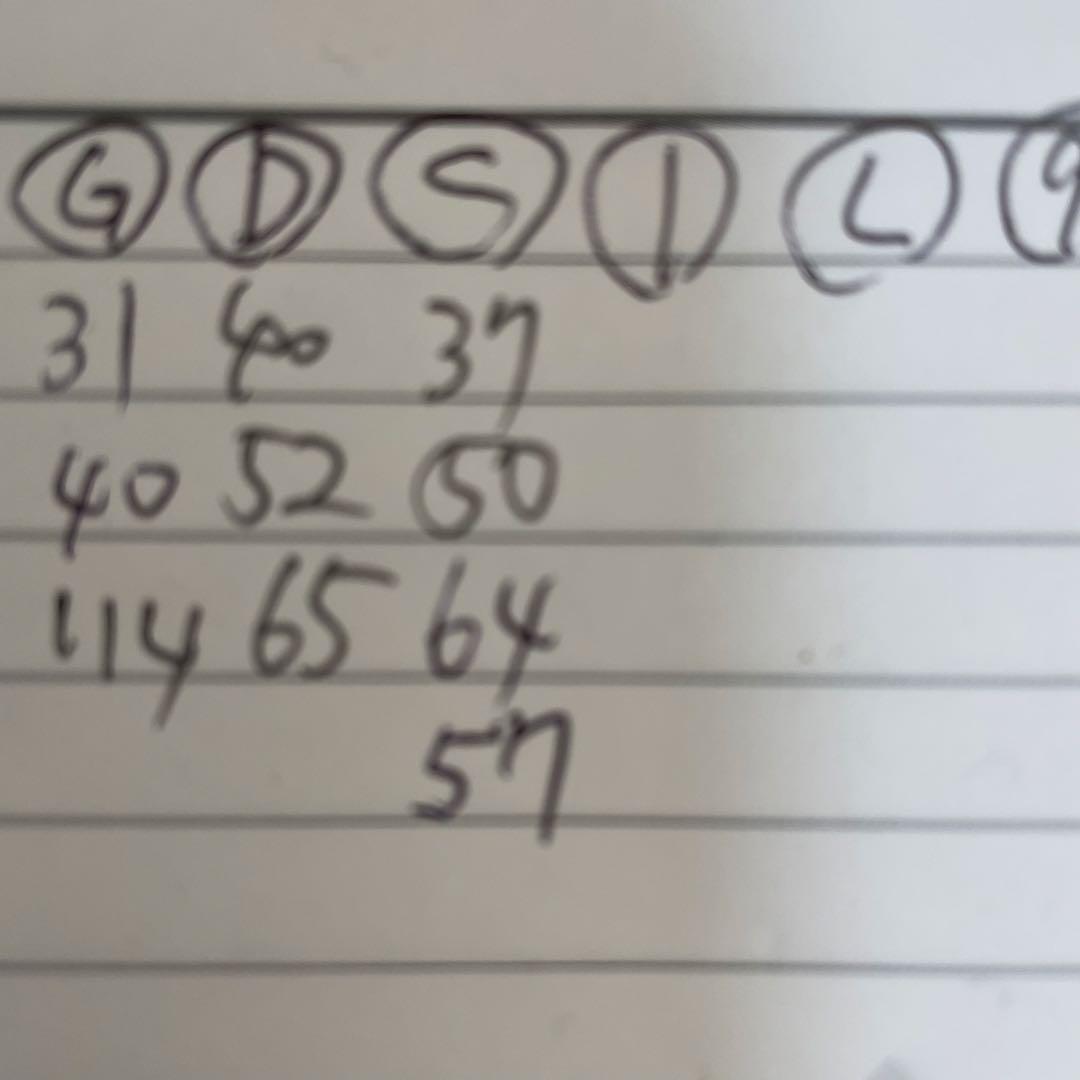 G D S 1 L 9
31 40 37
40 52 50
114 65 64
57